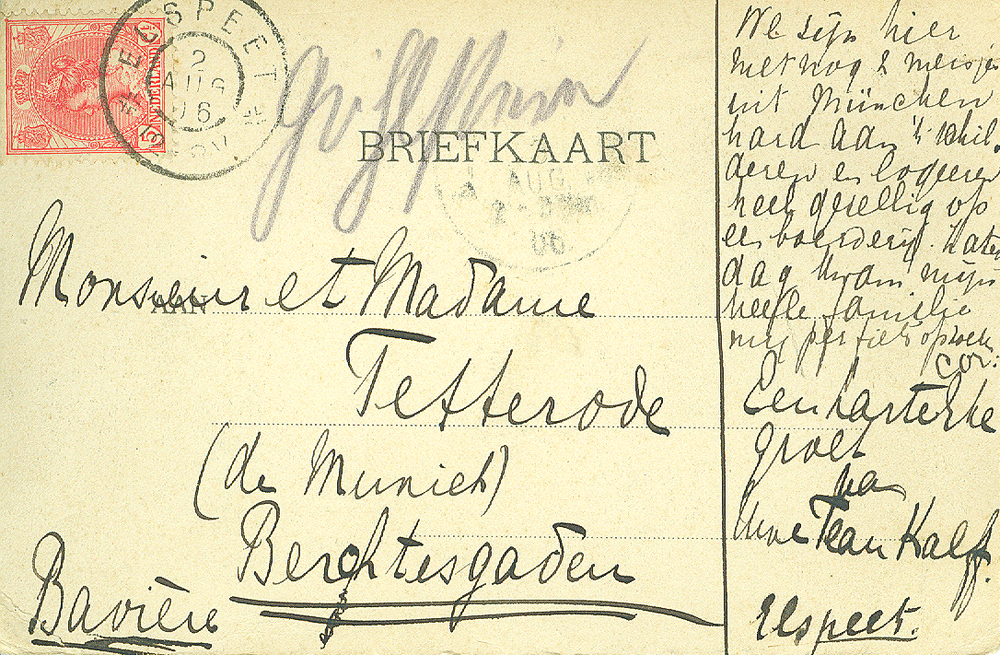 NEDERLAND
ELSPEET
2
AUG
06
BRIEFKAART
AUG
06
AAN
Monsieur et Madame
Tetterode
(de Munich)
Berchtesgaden
Bavière
We zijn hier
met nog 2 meisjes
uit München
hard aan 't schil-
deren en logeeren
heel gezellig op
een boerderij. Zater
dag kwam mijn
heele familie
mij per fiets opzoeken
Cor:
Een hartelyke
groet
van
Uwe Jean Kalff.
Elspeet.